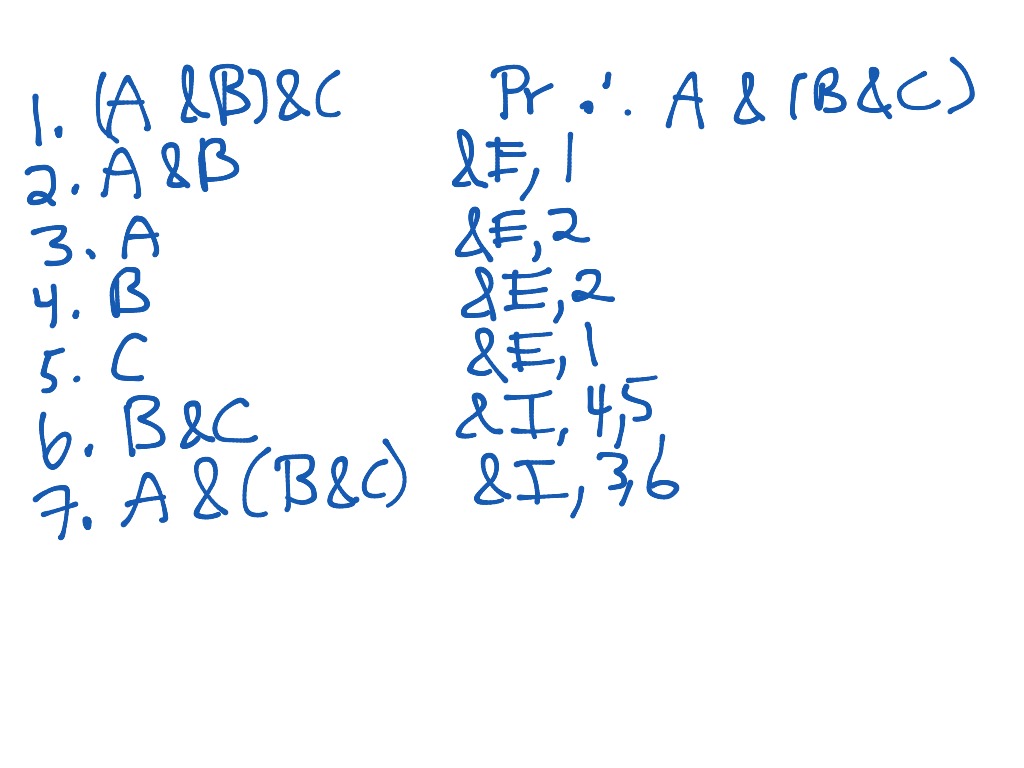 1. (A &B)&C Pr ∴ A & (B & C)
2. A &B &E, 1
3. A &E, 2
4. B &E, 2
5. C &E, 1
6. B &C &I, 4,5
7. A & (B&C) &I, 3,6